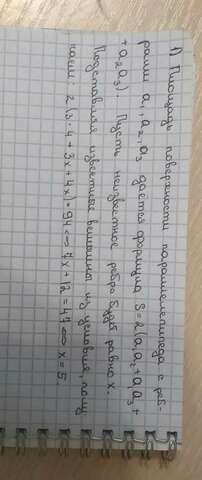 1) Площадь поверхности параллелепипеда с реб-
рами a₁, a₂, a₃ дается формулой S = 2(a₁a₂ + a₁a₃ +
+ a₂a₃). Пусть неизвестное ребро будет равно x.
Подставляя известные величины из условия, полу
чаем: 2(3·4 + 3x + 4x) = 94 ⇔ 7x + 12 = 47 ⇔ x = 5.